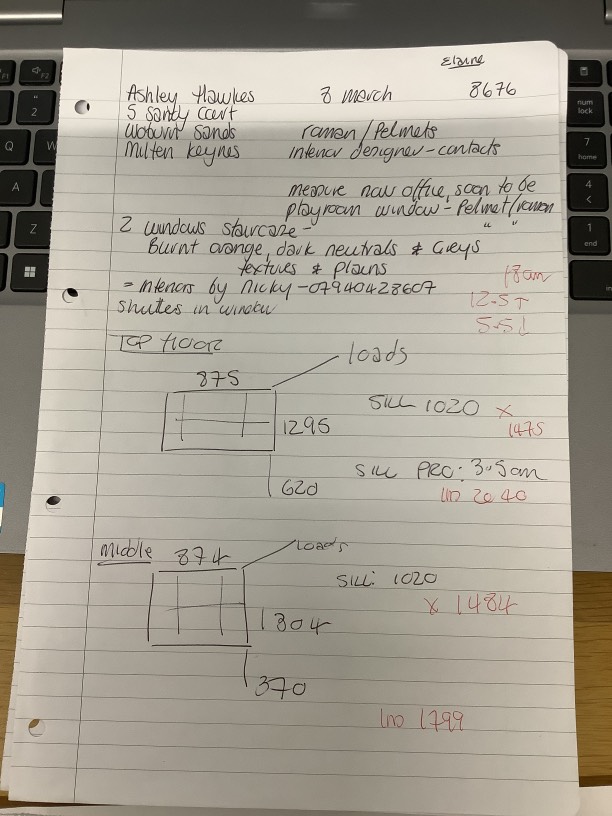 Elaine
Ashley Hawkes 8 march 8676
5 Sandy Court
Woburn Sands roman/Pelmets
Milten Keynes interior designer - contacts
measure now office, soon to be
playroom window - Pelmet/roman
2 windows staircase - " "
Burnt orange, dark neutrals & Greys
textures & plains
= Interiors by nicky - 07940428607
18cm
12.5↑
shutters in window
5.5↓
TOP FLOOR
loads
875
SILL 1020 x
1295
1475
SILL PRO: 3.5cm
620
2040
middle
874
loads
SILL: 1020
x 1484
1304
370
1799
F1
F2
2
Q
W
A
Z
num
lock
7
home
4
1
end